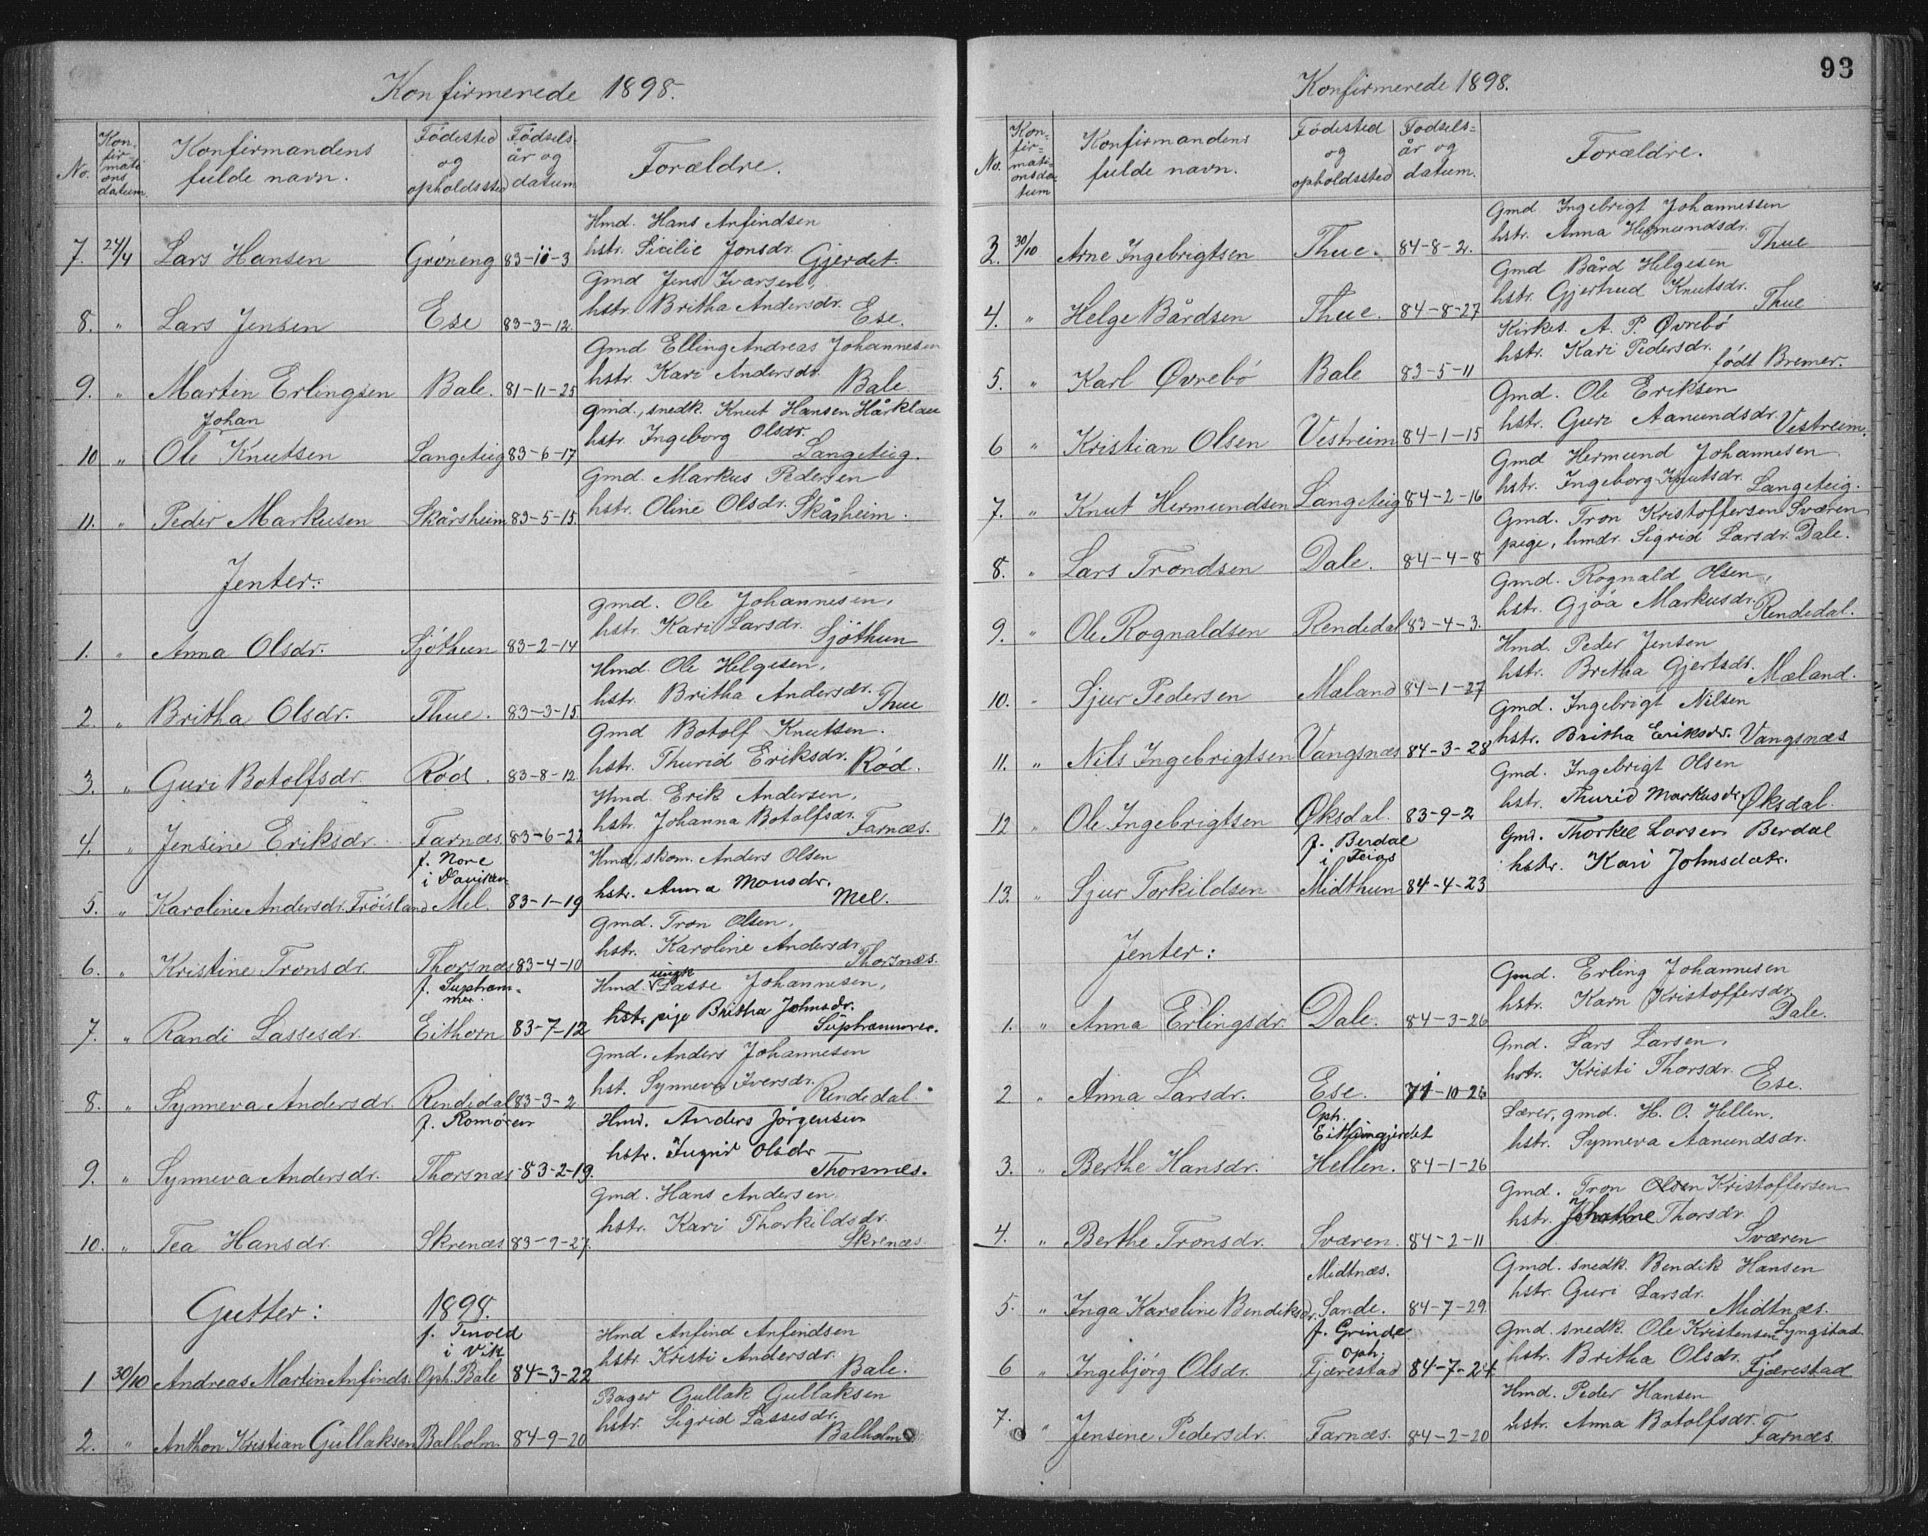 Konfirmerede 1898.
No. Konfirmationsdatum Konfirmandens fulde navn. Fødested og opholdssted Fødselsår og datum Forældre.
Hmd. Hans Anfindsen
7. 24/4 Lars Hansen Grøneng 83-11-3 hstr. Sicilie Jonsdr. Gjerdet
Gmd Jens Ivarsen,
8. " Lars Jensen Ese 83-3-12. hstr. Britha Andersdr. Ese.
Gmd Elling Andreas Johannesen
9. " Marten Erlingsen Bale. 81-11-25 hstr. Kari Andersdr. Bale
Johan gmd., snedk. Knut Hansen Hårklau
10 " Ole Knutsen Langeteig 83-6-17 hstr. Ingeborg Olsdr. Langeteig.
Gmd. Markus Pedersen
11. " Peder Markusen Skårsheim 83-5-15. hstr. Oline Olsdr. Skårheim.
Jenter:
gmd. Ole Johannesen,
1. " Anna Olsdr. Sjøthun 83-2-14 hstr. Kari Larsdr. Sjøthun
Hmd. Ole Helgesen,
2. " Britha Olsdr. Thue. 83-3-15. hstr. Britha Andersdr. Thue
Gmd Botolf Knutsen.
3. " Guri Botolfsdr. Rød. 83-8-12 hstr. Thurid Eriksdr. Rød.
Hmd. Erik Andersen,
4. " Jensine Eriksdr. Farnæs. 83-6-22 hstr. Johanna Botolfsdr. Farnæs.
f. Nore i Daviken Hmd, skom. Anders Olsen
5. " Karoline Andersdr. Frøisland Mel. 83-1-19 hstr. Anna Monsdr. Mel.
gmd. Tron Olsen,
6. " Kristine Tronsdr. Thorsnæs 83-4-10 hstr. Karoline Andersdr. Thorsnæs.
f. Supham- mer. Hmd. ungk Lasse Johannesen,
7. " Randi Lassesdr. Eithorn 83-7-12 hst. pige Britha Johnsdr. Suphammer.
Gmd. Anders Johannesen
8. " Synneva Andersdr. Rendedal 83-3-2 hst. Synneva Iversdr. Rendedal
f. Romøren Hmd. Anders Jørgensen
9. " Synneva Andersdr. Thorsnæs 83-2-19. hstr. Ingrid Olsdr Thorsnes.
Gmd. Hans Andersen
10. " Tea Hansdr. Skrenæs 83-9-27. hstr. Kari Thorkildsdr. Skrenæs.
Gutter: 1898.
f. Tenold i Vik Hmd Anfind Anfindsen
1 30/10 Andreas Martin Anfinds. Oph. Bale 84-3-22 hstr. Kristi Andersdr. Bale.
Bager Gullak Gullaksen
2. " Anthon Kristian Gullaksen Balholm. 84-9-20 hstr. Sigrid Lassesdr. Balholm
93
Konfirmerede 1898.
No. Konfirmationsdatum Konfirmandens fulde navn. Fødested og opholdssted Fødselsår og datum. Forældre.
Gmd Ingebrigt Johannessen
3. 30/10 Arne Ingebrigtsen Thue. 84-8-2. hstr. Anna Hermundsdr. Thue
Gmd Bård Helgesen
4. " Helge Bårdsen Thue. 84-8-27 hstr. Gjertrud Knutsdr. Thue
Kirkes. A. P. Øvrebø
5. " Karl Øvrebø Bale 83-5-11 hstr. Kari Pedersdr. født Bremer.
Gmd. Ole Eriksen
6 " Kristian Olsen Vestreim 84-1-15 hstr. Guri Aamundsdr. Vestreim.
Gmd Hermund Johannesen
7. " Knut Hermundsen Langeteig 84-2-16 hstr. Ingeborg Knutsdr. Langeteig.
Gmd. Tron Kristoffersen Sværen
8. " Lars Trondsen Dale. 84-4-8 pige, hmdr. Sigrid Larsdr. Dale.
Gmd. Rognald Olsen,
9. " Ole Rognaldsen Rendedal 83-4-3. hstr. Gjøa Markusdr. Rendedal.
Hmd. Peder Jensen
10. " Sjur Pedersen Mæland 84-1-27 hstr. Britha Gjertsdr. Mæland.
Gmd. Ingebrigt Nilsen
11. " Nils Ingebrigtsen Vangsnæs 84-3-28 hstr. Britha Eriksdr. Vangsnæs
Gmd. Ingebrigt Olsen
12 " Ole Ingebrigtsen Øksdal. 83-9-2 hstr. Thurid Markusdr Øksdal.
f. Berdal i Feios Gmd. Thorkel Larsen Berdal
13. " Sjur Torkildsen Midthun 84-4-23 hstr. Kari Johnsdatr.
Jenter:
Gmd. Erling Johannesen
1. " Anna Erlingsdr. Dale. 84-3-26 hstr. Karn Kristoffersdr. Dale.
Gmd. Lars Larsen,
2 " Anna Larsdr. Ese. 71-10-26 hstr. Kristi Thorsdr. Ese.
Oph. Eithungjerdet Lærer, gmd. H. O. Hellen.
3. " Berthe Hansdr. Hellen. 84-1-26 hstr. Synneva Aamundsdr.
Gmd. Tron Olsen Kristoffersen
4. " Berthe Tronsdr. Sværen. 84-2-11 hstr. Thorsdr. Sværen
Midtnæs. Gmd. snedk. Bendik Hansen
5. " Inga Karoline Bendiksdr. Sande. 84-7-29. hstr. Guri Larsdr. Midtnæs.
f. Grinde oph. Gmd. snedk. Ole Kristensen Lyngstad
6 " Ingebjørg Olsdr. Fjærestad 84-7-24 hstr. Britha Olsdr. Fjærestad
Hmd. Peder Hansen
7. " Jensene Pedersdr. Farnæs. 84-2-20 hstr. Anna Botolfsdr. Farnæs.